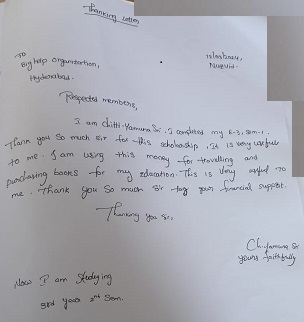 Thanking Letter
To
Big help organization,
Hyderabad.
Nuzvid.
Respected members,
I am chitti-Yamuna Sri. I completed my E-3, sem-1.
Thank you so much sir for this scholarship. It is very useful
to me. I am using this money for travelling and
purchasing books for my education. This is very useful to
me. Thank you so much sir for your financial support.
Thanking you sir,
Ch. Yamuna Sri
yours faithfully
Now I am studying
3rd year 2nd sem.